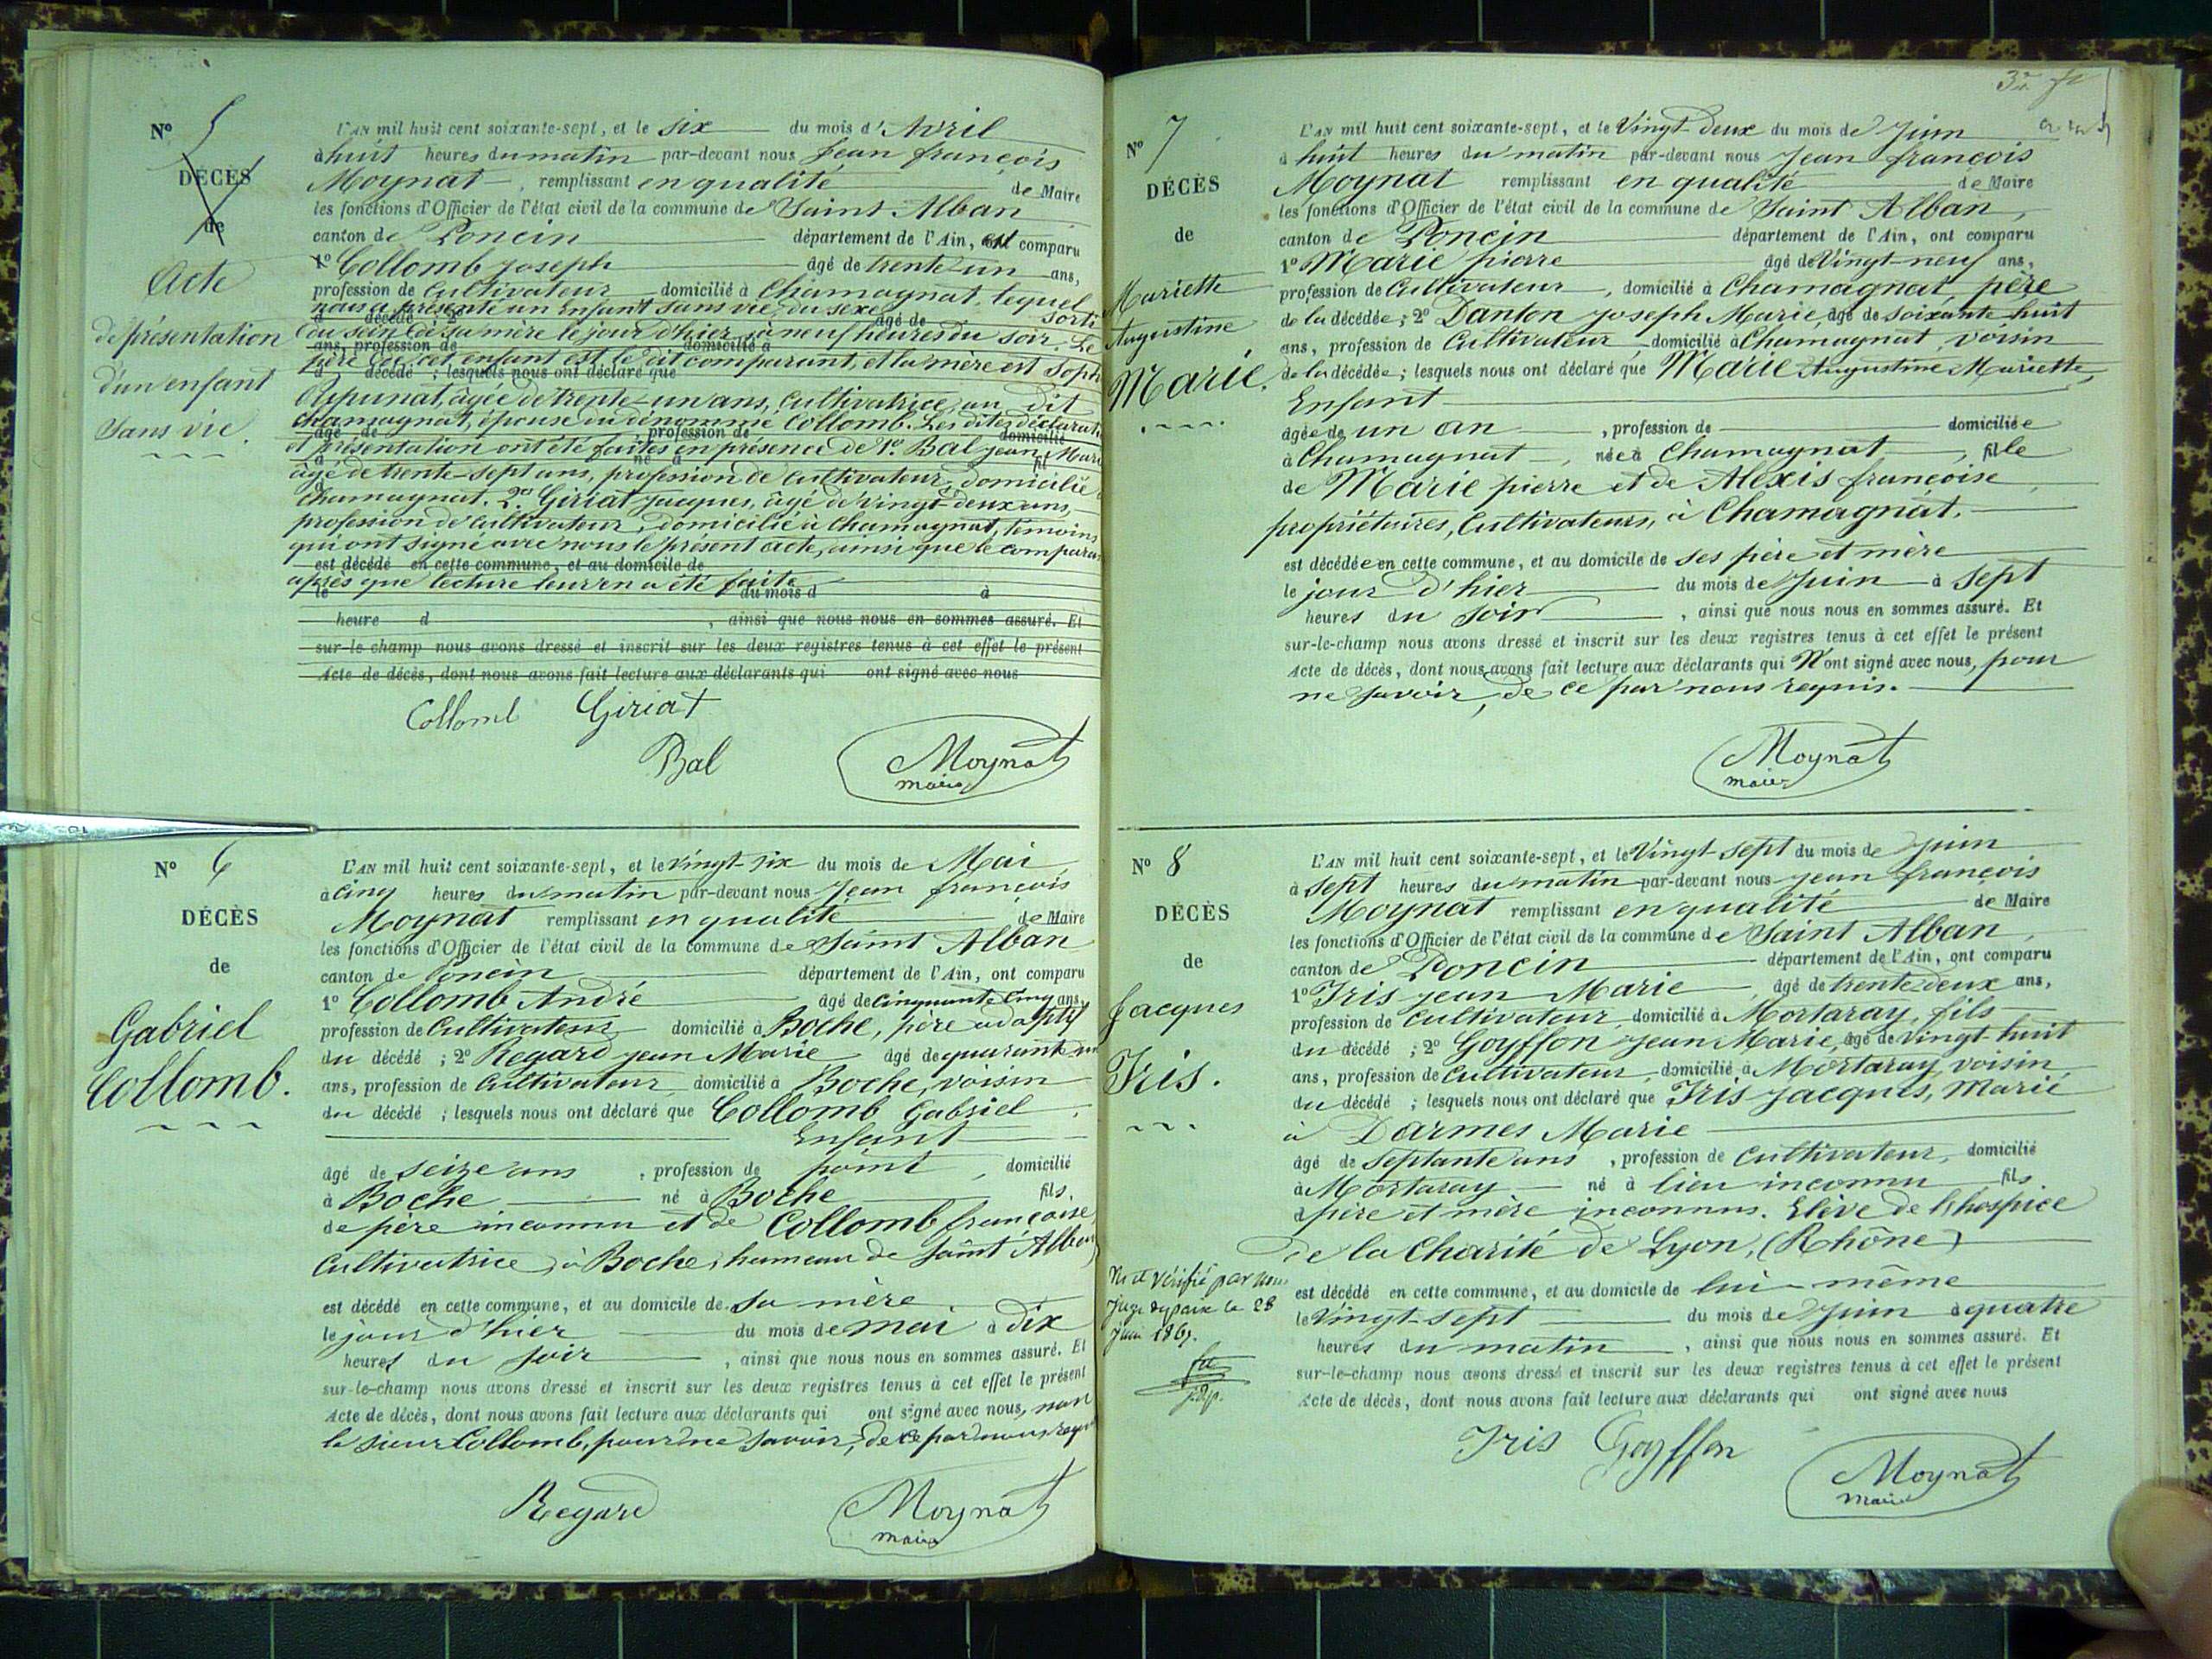 N° 5
DÉCÈS
de
Acte
de présentation
d'un enfant
Sans vie.
L'AN mil huit cent soixante-sept, et le six du mois d'Avril
à huit heures du matin par-devant nous Jean françois
Moynat, remplissant en qualité de Maire
les fonctions d'Officier de l'état civil de la commune de Saint Alban
canton de Poncin département de l'Ain, est comparu
1° Collomb joseph âgé de trente-un ans,
profession de Cultivateur domicilié à Chamagnat, lequel
nous a présenté un Enfant sans vie, du sexe sorti
du sein de sa mère le jour d'hier, à neuf heures du soir. Le
père de cet enfant est le dit comparant, et la mère est
âgée de trente-un ans, Cultivatrice, au dit
Chamagnat, épouse du dénommé Collomb. Les dites
et présentation ont été faites en présence de 1° Bal jean
âgé de trente-sept ans, profession de Cultivateur, domicilié
Chamagnat. 2° Giriat jacques, âgé de vingt-deux ans,
profession de Cultivateur, domicilié à Chamagnat, témoins
qui ont signé avec nous le présent acte, ainsi que le
après que lecture leur en a été faite
est décédé en cette commune, et au domicile de
le du mois d à
heure d , ainsi que nous nous en sommes assuré. Et
sur-le-champ nous avons dressé et inscrit sur les deux registres tenus à cet effet le présent
Acte de décès, dont nous avons fait lecture aux déclarants qui ont signé avec nous
Collomb Giriat
Bal Moynat
maire
N° 6
DÉCÈS
de
Gabriel
Collomb.
L'AN mil huit cent soixante-sept, et le vingt-six du mois de Mai
à cinq heures du matin par-devant nous Jean françois
Moynat remplissant en qualité de Maire
les fonctions d'Officier de l'état civil de la commune de Saint Alban
canton de Poncin département de l'Ain, ont comparu
1° Collomb André âgé de cinquante cinq ans,
profession de Cultivateur domicilié à Boche, père adoptif
du décédé ; 2° Regard jean Marie âgé de quarante
ans, profession de Cultivateur domicilié à Boche, voisin
du décédé ; lesquels nous ont déclaré que Collomb Gabriel
Enfant
âgé de seize ans , profession de point , domicilié
à Boche né à Boche fils,
de père inconnu et de Collomb françoise,
Cultivatrice, à Boche, hameau de Saint Alban
est décédé en cette commune, et au domicile de sa mère
le jour d'hier du mois de mai à dix
heures du soir , ainsi que nous nous en sommes assuré. Et
sur-le-champ nous avons dressé et inscrit sur les deux registres tenus à cet effet le présent
Acte de décès, dont nous avons fait lecture aux déclarants qui ont signé avec nous, non
le sieur Collomb, pour ne savoir, de ce par nous
Regard Moynat
maire
N° 7
DÉCÈS
de
Mariette
Augustine
Marie.
L'AN mil huit cent soixante-sept, et le Vingt-deux du mois de Juin
à huit heures du matin par-devant nous Jean françois
Moynat remplissant en qualité de Maire
les fonctions d'Officier de l'état civil de la commune de Saint Alban,
canton de Poncin département de l'Ain, ont comparu
1° Marie pierre âgé de Vingt-neuf ans,
profession de Cultivateur, domicilié à Chamagnat, père
de la décédée ; 2° Danton joseph Marie, âgé de soixante-huit
ans, profession de Cultivateur, domicilié à Chamagnat, voisin
de la décédée ; lesquels nous ont déclaré que Marie Augustine Mariette,
Enfant
âgée de un an , profession de domiciliée
à Chamagnat, née à Chamagnat, fille
de Marie pierre et de Alexis françoise,
propriétaires, Cultivateurs, à Chamagnat.
est décédée en cette commune, et au domicile de ses père et mère
le jour d'hier du mois de Juin à sept
heures du soir , ainsi que nous nous en sommes assuré. Et
sur-le-champ nous avons dressé et inscrit sur les deux registres tenus à cet effet le présent
Acte de décès, dont nous avons fait lecture aux déclarants qui N'ont signé avec nous, pour
ne savoir, de ce par nous requis.
Moynat
maire
N° 8
DÉCÈS
de
Jacques
Iris.
L'AN mil huit cent soixante-sept, et le Vingt-sept du mois de juin
à sept heures du matin par-devant nous jean françois
Moynat remplissant en qualité de Maire
les fonctions d'Officier de l'état civil de la commune de Saint Alban,
canton de Poncin département de l'Ain, ont comparu
1° Iris jean Marie, âgé de trente-deux ans,
profession de Cultivateur, domicilié à Mortaray, fils
du décédé ; 2° Goyffon Jean Marie, âgé de vingt-huit
ans, profession de Cultivateur, domicilié à Mortaray, voisin
du décédé ; lesquels nous ont déclaré que Iris Jacques, Marié
à Darmes Marie
âgé de Septante ans , profession de Cultivateur, domicilié
à Mortaray né à lieu inconnu fils
d père et mère inconnus. Elève de l'hospice
de la Charité de Lyon, (Rhône)
est décédé en cette commune, et au domicile de lui-même
le Vingt-sept du mois de Juin à quatre
heures du matin , ainsi que nous nous en sommes assuré. Et
sur-le-champ nous avons dressé et inscrit sur les deux registres tenus à cet effet le présent
Acte de décès, dont nous avons fait lecture aux déclarants qui ont signé avec nous
Vu et vérifié par nous
juge de paix le 28
juin 1867.
Iris Goyffon
Moynat
maire